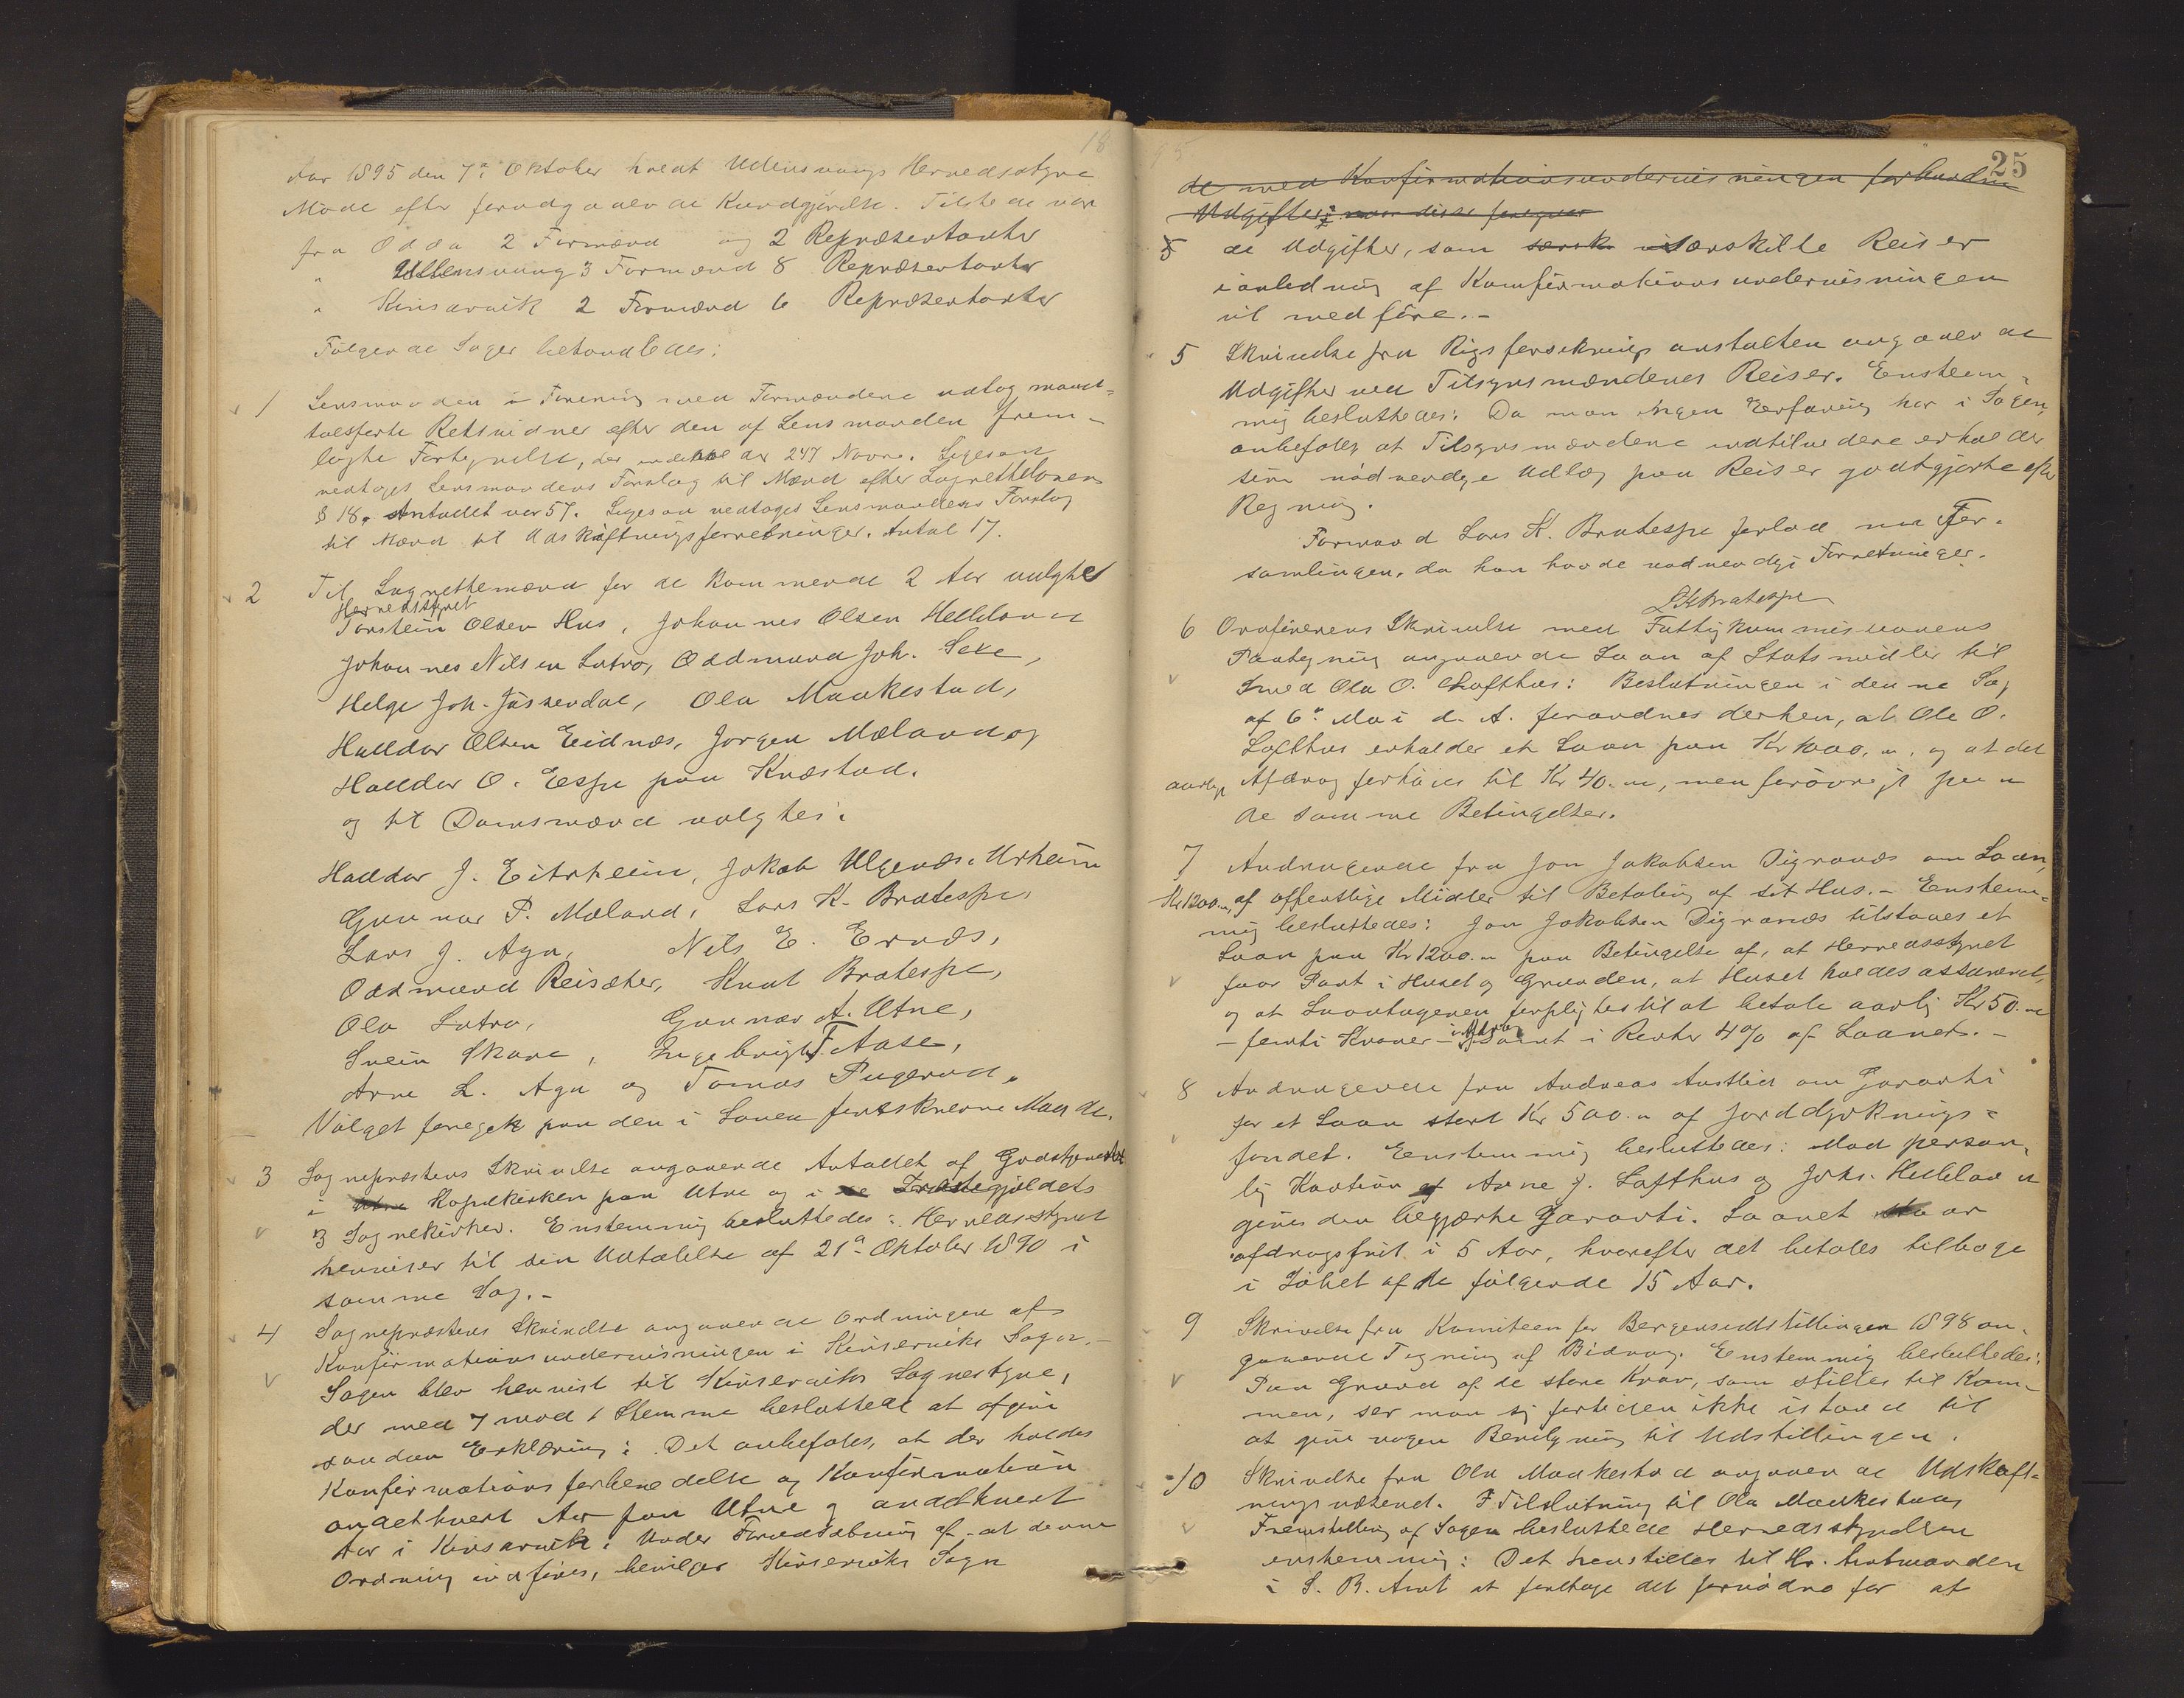 18
Aar 1895 den 7de Oktober holdt Ullensvangs Herredsstyre
Møde efter foradgaaende Kundgjørelse. Tilstede var
fra Odda 2 Formænd og 2 Repræsentanter
" Ullensvang 3 Formænd 8 Repræsentanter
" Kinsarvik 2 Formænd 6 Repræsentanter
Følgende Sager behandledes:
1 Lensmanden i Forening med Formændene udtog mandt-
talsførte Retsvidner efter den af Lensmanden frem-
lagte Fortegnelse, der indeholder 247 Navne. Ligesaa
vedtoges Lensmandens Forslag til Mænd efter Lagrettelovens
§ 18. Antallet var 57. Ligesaa vedtoges Lensmandens Forslag
til Mænd til Udskiftningsforretninger. Antal 17.
2 Til Lagrettemænd for de kommende 2 Aar valgte
Herredsstyret
Torstein Olsen Hus, Johannes Olsen Helleland
Johannes Nilsen Lutro, Oddmund Joh. Sexe,
Helge Joh. Jåstendal, Ola Maakestad,
Halldor Olsen Eidnæs, Jørgen Mæland og
Halldor O. Espe paa Kvæstad.
og til Domsmænd valgtes:
Halldor J. Eitrheim, Jakob Ulgenæs Urheim
Gunnar P. Mæland, Lars K. Bratespe,
Lars J. Aga, Nils E. Ernæs,
Oddmund Reisæter, Knut Bratespe,
Ola Lutro, Gunnar A. Utne,
Svein Skare, Ingebrigt T. Aase,
Arne L. Aga og Tomas Pugerud.
Valget foregik paa den i Loven foreskrevne Maade.
3 Sognepræstens Skrivelse angaaende Antallet af Gudstjenester
i Utne Kapelkirken paa Utne og i de Præstegjeldets
3 Sognekirker. Enstemmig besluttedes: Herredsstyret
henviser til sin Udtalelse af 21de Oktober 1890 i
samme Sag.-
4 Sognepræstens Skrivelse angaaende Ordningen af
Konfirmationsundervisningen i Kinserviks Sogn.-
Sagen blev henvist til Kinserviks Sognestyre,
der med 7 mod 1 Stemme besluttede at afgive
saadan Erklæring: Det anbefales, at der holdes
Konfirmationsforberedelse og Konfirmation
andethvert Aar paa Utne og andethvert
Aar i Kinsarvik. Under Forudsætning af at denne
Ordning indføres, bevilger Kinserviks Sogn
25
de med Konfirmationsundervisningen forbundne
Udgifter, naar disse foregaar
5 de Udgifter, som særsk særskilte Reiser
i anledning af Komfirmationsundervisningen
vil medføre.-
5 Skrivelse fra Rigsforsikringsanstalten angaaende
Udgifter ved Tilsynsmændenes Reiser. Enstem-
mig besluttedes: Da man ingen Erfaring har i Sagen,
anbefales at Tilsynsmændene indtilvidere erholder
sine nødvendige Udlæg paa Reiser godtgjorte efter
Regning.
Formand Lars K. Bratespe forlod nu For-
samlingen, da han havde nødvendige Forretninger.
LKBratespe
6 Ordførerens Skrivelse med Fattigkommissionens
Paategning angaaende Laan af Statsmidler til
Smed Ola O. Lofthus: Beslutningen i denne Sag
af 6te Mai d. A. forandres derhen, at Ole O.
Lofthus erholder et Laan paa Kr 1000.00, og at det
aarlige Afdrag forhøies til Kr 40.00, men forøvrigt paa
de samme Betingelser.
7 Andragende fra Jon Jakobsen Digranæs om Laan,
Kr 1200.00, af offentlige Midler til Betaling af sit Hus.- Enstem-
mig besluttedes: Jon Jakobsen Digranæs tilstaaes et
Laan paa Kr 1200.00 paa Betingelse af, at Herredsstyret
faar Pant i Huset og Grunden, at Huset holdes assureret,
og at Laantageren forpligtes til at betale aarlig Kr 50.00
- femti Kroner - i Afdrag samt i Renter 4% af Laanet.-
8 Andragende fra Andreas Austlid om Garanti
for et Laan stort Kr 500.00 af Jorddyrknings-
fondet. Enstemmig besluttedes: Mod person-
lig Kaution af Arne J. Lofthus og Johs. Helleland
gives den begjærte Garanti. Laanet staar
afdragsfrit i 5 Aar, hvorefter det betales tilbage
i Løbet af de følgende 15 Aar.
9 Skrivelse fra Komiteen for Bergensudstillingen 1898 an-
gaaende Tegning af Bidrag. Enstemmig besluttedes:
Paa Grund af de store Krav, som stilles til Kom-
men, ser man sig fortiden ikke istand til
at give nogen Bevilgning til Udstillingen.
10 Skrivelse fra Ola Maakestad angaaende Udskift-
ningsvæsenet. I Tilslutning til Ola Maakestads
Fremstilling af Sagen besluttede Herredsstyrelsen
enstemmig: Det henstilles til Hr. Amtmanden
i S. B. Amt at foretage det fornødne for at